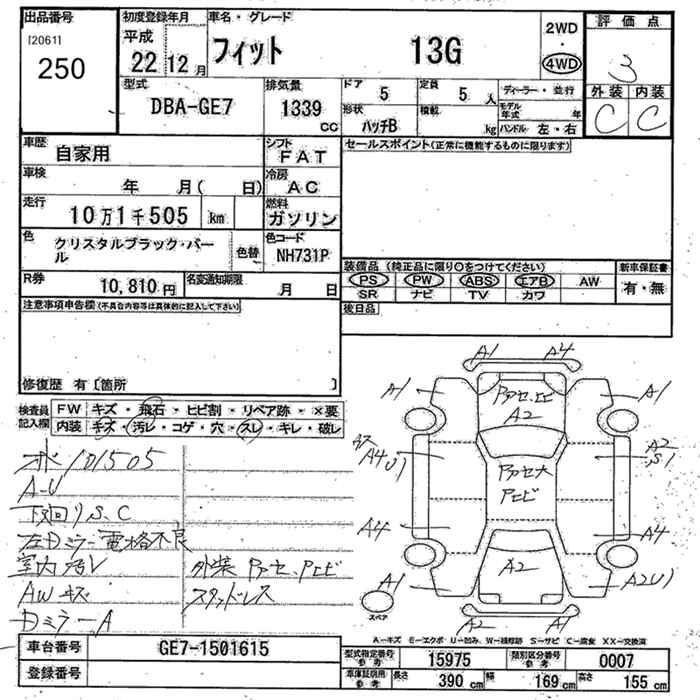 出品番号
[20611
250
初度登録年月
平成
22 12 月
車名・グレード
フィット 13G
2WD
・
4WD
評価点
3
外装 内装
C C
型式
DBA-GE7
排気量
1339 cc
ドア 5
定員 5 人
形状 ハッチB
積載 kg
ディーラー・並行
モデル年式 年
ハンドル 左・右
車歴
自家用
シフト
FAT
車検
年 月( 日)
冷房
AC
走行
10万1千505 km
燃料
ガソリン
色
クリスタルブラック・パール
色替
色コード
NH731P
R券
10,810 円
名変通知期限
月 日
セールスポイント(正常に機能するものに限ります)
装備品 (純正品に限り〇をつけてください)
PS PW ABS エアB AW
SR ナビ TV カワ
新車保証書
有・無
後日品
注意事項申告欄(不具合内容等は具体的に記入して下さい)
修復歴 有〔箇所 〕
検査員記入欄
FW キズ・飛石・ヒビ割・リペア跡・×要
内装 キズ・汚レ・コゲ・穴・スレ・キレ・破レ
メーター 101505
A-U
下回りS、C
左Dミラー電格不良
室内汚レ
外装
AWキズ
スタッドレス
Dミラー A
A1 A4
A1 A1
A2
A4 U1
A2
S1
A4 A4
A2
A1 A2 U1
A2 A1
スペア
A-キズ E-エクボ U-凹み W-補修跡 S-サビ C-腐食 XX-交換済
車台番号
GE7-1501615
登録番号
型式指定番号 参考
15975
類別区分番号 参考
0007
車庫証明用 参考
長さ 390 cm
幅 169 cm
高さ 155 cm